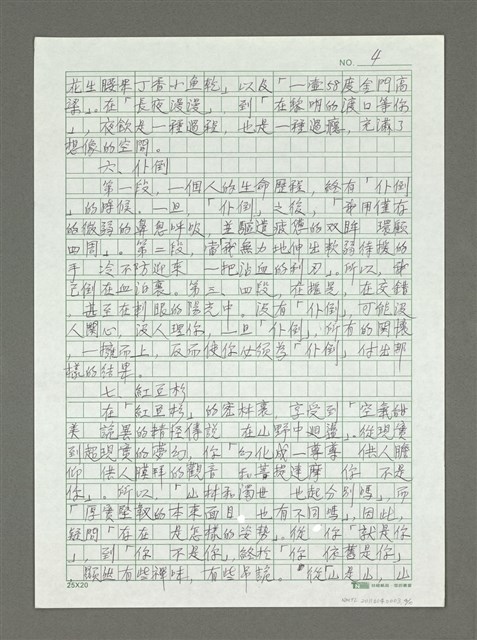 NO. 4
花生腰果丁香小魚乾」以及「一壺58度金門高
粱」。在「長夜漫漫」,到「在黎明的渡口等你
」,夜飲是一種過程,也是一種過癮,充滿了
想像的空間。
六、仆倒
第一段,一個人的生命歷程,總有「仆倒
」的時候。一旦,「仆倒」之後,「我用僅存
的微弱的鼻息呼吸,並驅遣疲憊的双眸 環顧
四周」。第二段,當我無力地伸出軟弱待援的
手 冷不防迎來 一把沾血的利刃」。所以,我
已倒在血泊裏。第三、四段,在搖晃,在交錯
,甚至在刺眼的陽光中。沒有「仆倒」,可能沒
人關心,沒人理你,一旦「仆倒」,所有的關懷
,一擁而上,反而使你必須為「仆倒」付出那
樣的結果。
七、紅豆杉
在「紅豆杉」的密林裏,享受到「空氣甜
美 詭異的精怪傳說 在山野中迴盪」。從現實
到超現實的夢幻,你「幻化成一尊尊 供人瞻
仰 供人膜拜的觀音 和菩提達摩 你 不是
你」。所以,「山林和濁世 也起分別嗎」,而
「厚實堅靭的本來面目 也有不同嗎」,因此,
疑問「存在 是怎樣的姿勢」。從「你 就是你
」,到「你 不是你」,終於「你 依舊是你」
,顯然有些禪味,有些吊詭。從「山是山,山
25X20